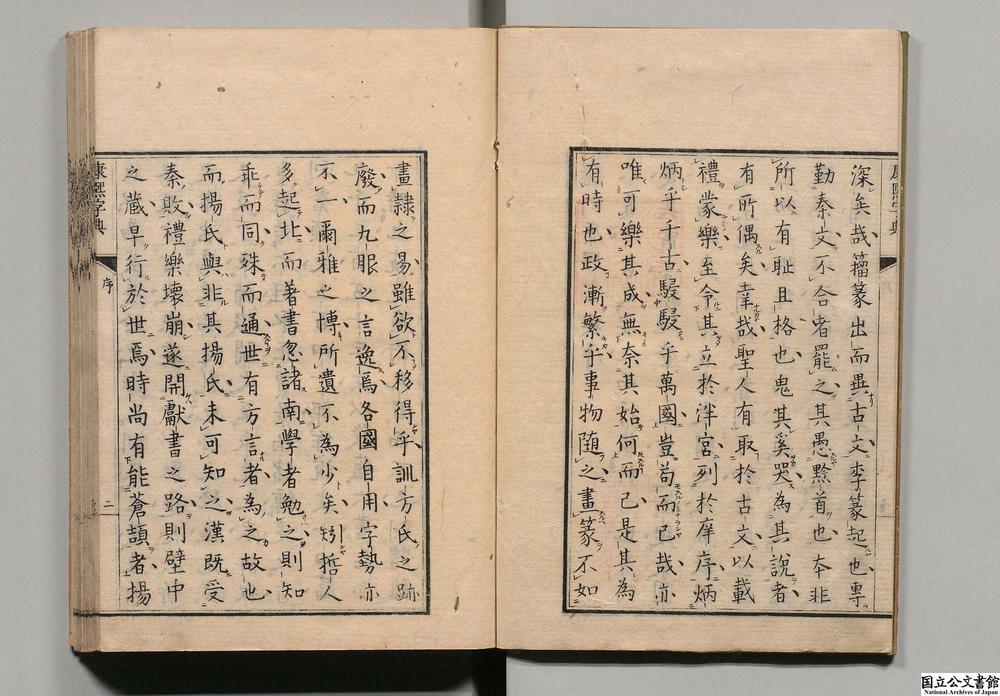 深矣哉籀篆出而異古文李篆起也專
勤秦文不合者罷之其愚黔首也本非
所以有耻且格也鬼其奚哭為其說者
有所偶矣幸哉聖人有取於古文以載
禮蒙樂至令其立於泮宮列於庠序炳
炳乎千古駸駸乎萬國豈苟而已哉亦
唯可樂其成無奈其始何而已是其為
有時也政漸繁乎事物随之畫篆不如
畫隷之易雖欲不移得乎訓方氏之跡
廢而九眼之言逸焉各國自用字勢亦
不一爾雅之博所遺不為少矣矧哲人
多起北而著書忽諸南學者勉之則知
乖而同殊而通世有方言者為之故也
而揚氏與非其揚氏未可知之漢既受
秦敗禮樂壞崩遂開獻書之路則壁中
之藏早行於世焉時尚有能蒼頡者揚
康熙字典
序
二
国立公文書館
National Archives of Japan